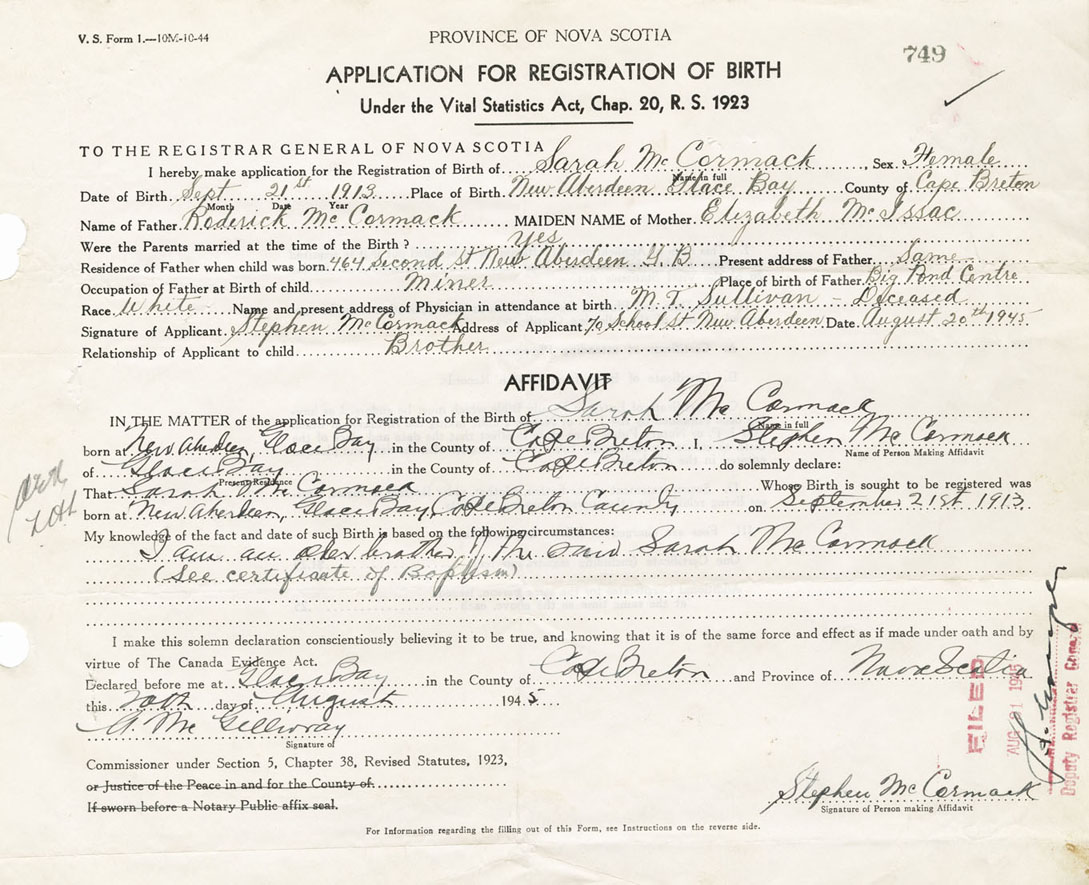 V. S. Form 1.—10M-10-44
PROVINCE OF NOVA SCOTIA
749
APPLICATION FOR REGISTRATION OF BIRTH
Under the Vital Statistics Act, Chap. 20, R. S. 1923
TO THE REGISTRAR GENERAL OF NOVA SCOTIA
I hereby make application for the Registration of Birth of Sarah Mc Cormack, Sex Female
Name in full
Date of Birth Sept 21st 1913 Place of Birth New Aberdeen Glace Bay County of Cape Breton
Month Date Year
Name of Father Roderick Mc Cormack MAIDEN NAME of Mother Elizabeth Mc Issac
Were the Parents married at the time of the Birth? yes
Residence of Father when child was born 464 Second st New Aberdeen G B Present address of Father Same
Occupation of Father at Birth of child Miner Place of birth of Father Big Pond Centre
Race White Name and present address of Physician in attendance at birth M. T. Sullivan - Deceased
Signature of Applicant Stephen Mc Cormack Address of Applicant 70 School st New Aberdeen Date August 20th 1945
Relationship of Applicant to child Brother
AFFIDAVIT
IN THE MATTER of the application for Registration of the Birth of Sarah Mc Cormack
Name in full
born at New Aberdeen, Glace Bay in the County of Cape Breton I, Stephen Mc Cormack
Name of Person Making Affidavit
of Glace Bay in the County of Cape Breton do solemnly declare:
Present Residence
That Sarah Mc Cormack Whose Birth is sought to be registered was
born at New Aberdeen, Glace Bay, Cape Breton County on September 21st 1913
My knowledge of the fact and date of such Birth is based on the following circumstances:
I am an older brother of the said Sarah Mc Cormack
(See certificate of Baptism)
I make this solemn declaration conscientiously believing it to be true, and knowing that it is of the same force and effect as if made under oath and by
virtue of The Canada Evidence Act.
Declared before me at Glace Bay in the County of Cape Breton and Province of Nova Scotia
this 20th day of August 1945
A. Mc Gillivray
Signature of
Commissioner under Section 5, Chapter 38, Revised Statutes, 1923,
or Justice of the Peace in and for the County of
If sworn before a Notary Public affix seal.
FILED
AUG 21 1945
Deputy Registrar General
Stephen Mc Cormack
Signature of Person making Affidavit
For Information regarding the filling out of this Form, see Instructions on the reverse side.